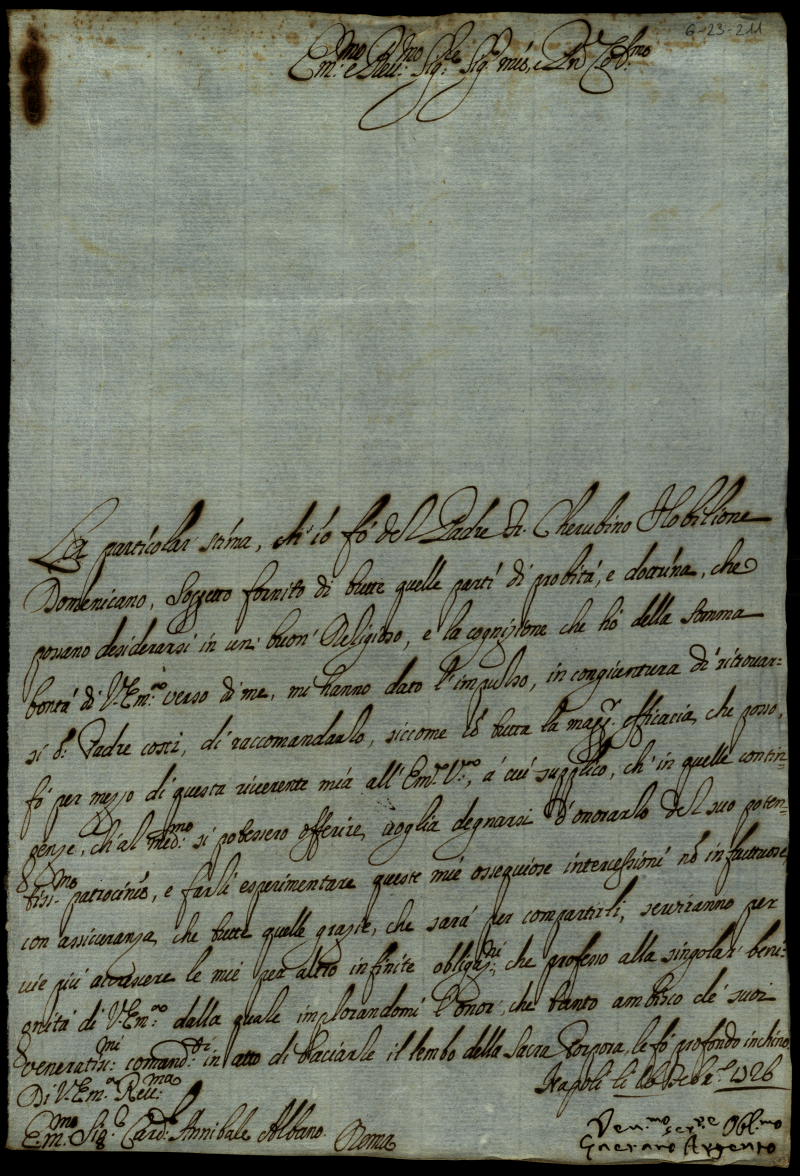 6-23-211
Em.mo e Reu.mo Sig.re Sig.r mio, e Pnē Col.mo
La particolar stima, ch'io fó del Padre fr. Cherubino Nobilione
Domenicano, Soggetto fornito di tutte quelle parti di probità, e dottrina, che
possano desiderarsi in un' buon' Religioso, e la cognizione che hò della somma
bontà di V. Em.za verso di me, mi hanno dato l'impulso, in congiuntura di ritrovar-
si d.o Padre costì, di raccomandarlo, siccome cō tutta la magg.r efficacia, che posso,
fó per mezzo di questa riverente mia all' Em.za V.ra, à cui supplico, ch' in quelle contin-
genze, ch' al med.mo si potessero offerire, voglia degnarsi d'onorarlo del suo poten-
tiss.mo patrocinio, e farli esperimentare queste mie ossequiose intercessioni nō infruttuose
con assicuranza, che tutte quelle grazie, che sarà per compartirli, serviranno per
vie più accrescere le mie per altro infinite obligaz.ni, che professo alla singolar beni-
gnità di V. Em.za dalla quale implorandomi l'onor, che tanto ambisco de' suoi
veneratiss.mi comand.ti in atto di baciarle il lembo della Sacra Porpora, le fó profondo inchino
Napoli li 16 Febr.o 1726
Di V. Em.za Reu.ma
Em.mo Sig.r Card.l Annibale Albano. Roma
Deu.mo ser.re Obl.mo
Gaetano Argento